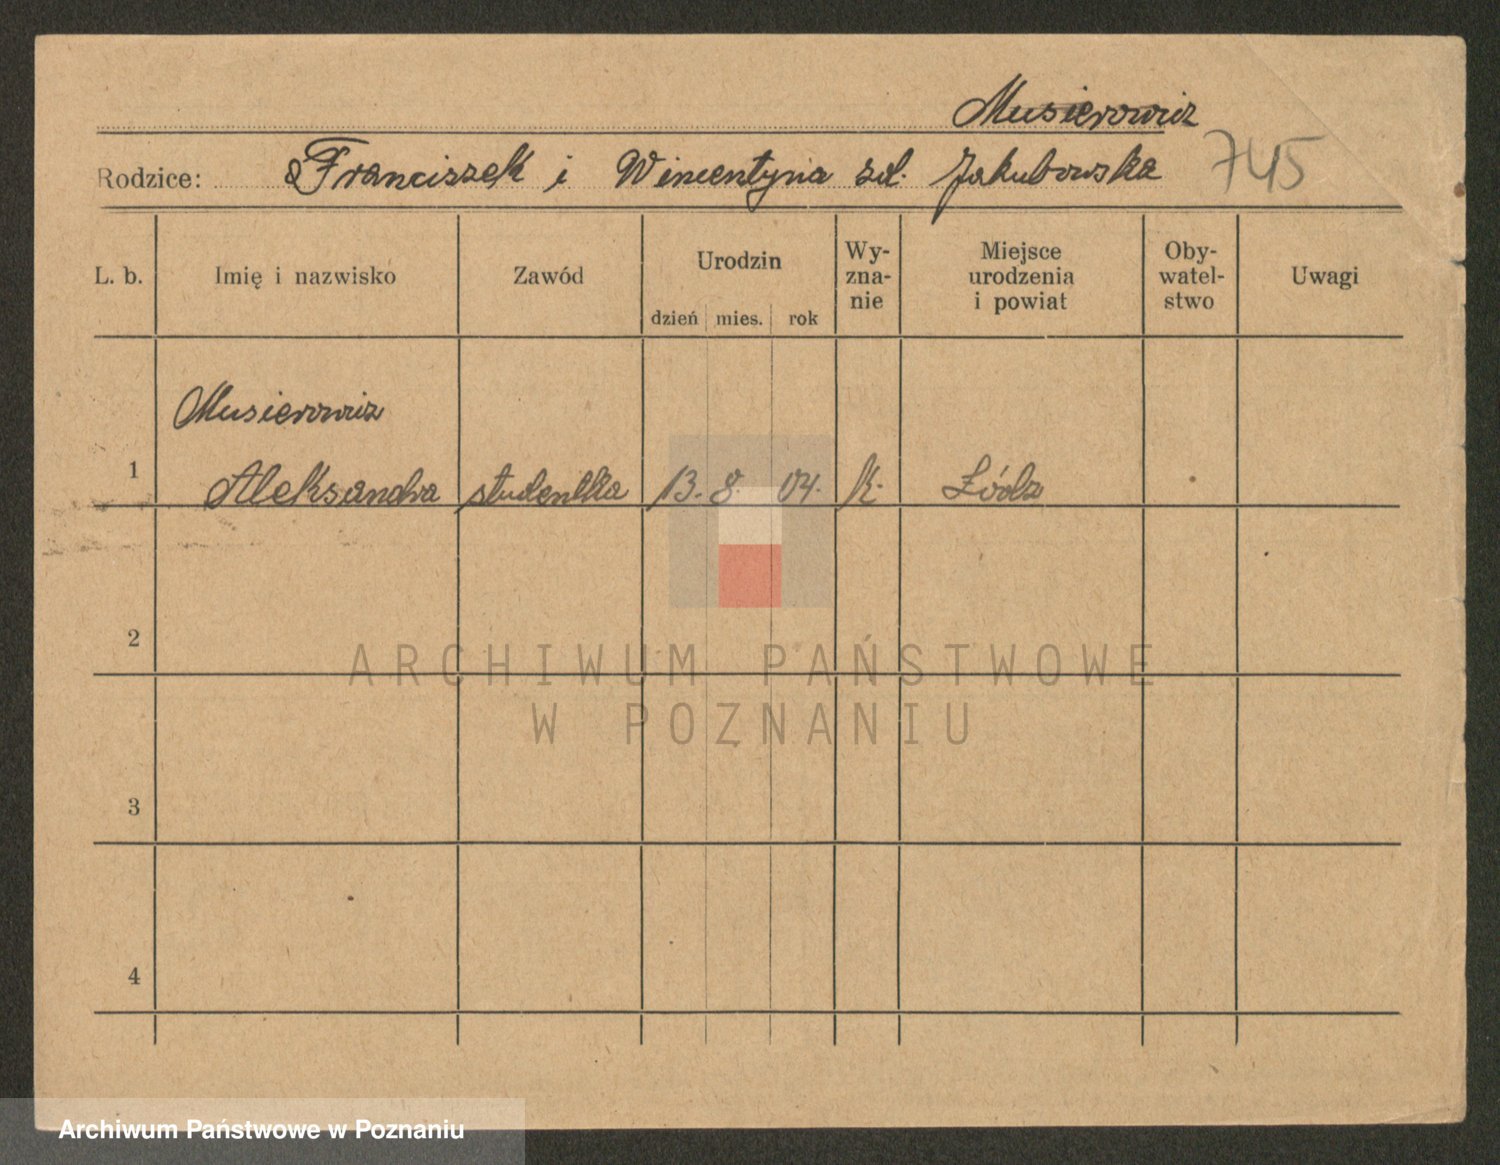 Musierowicz
Rodzice: Franciszek i Wincentyna zd. Jakubowska 745
L. b. Imię i nazwisko Zawód Urodzin Wy- Miejsce Oby- Uwagi
zna- urodzenia watel-
nie i powiat stwo
dzień mies. rok
Musierowicz
1 Aleksandra studentka 13. 8. 04. K. Łódz
2
ARCHIWUM PAŃSTWOWE
W POZNANIU
3
4
Archiwum Państwowe w Poznaniu